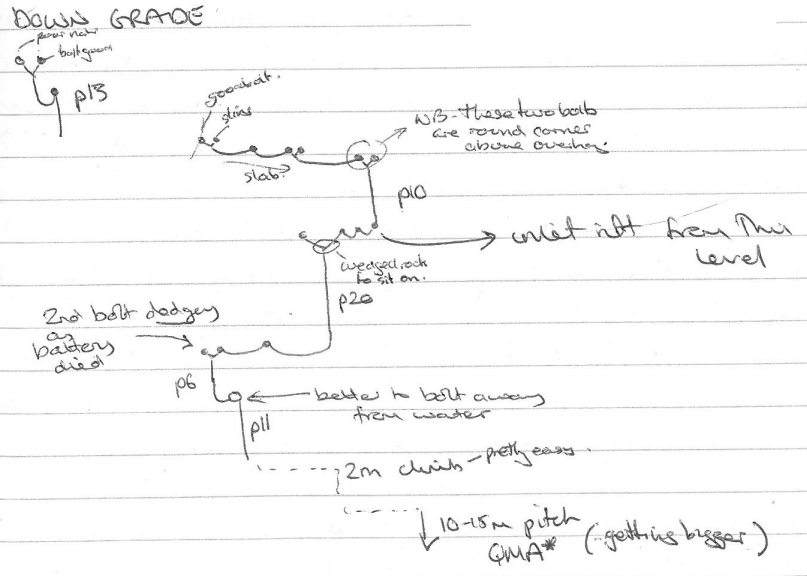 DOWN GRADE
poor nat
bolt good
p13
good bolt.
sling
NB - These two bolts
are round corner
above overhang.
slab.
p10
inlet rift from this
level
wedged rock
to sit on.
p20
2nd bolt dodgey
as
battery
died
p6
better to bolt away
from water
p11
2m climb - pretty easy.
10-15m pitch
QMA* (getting bigger)